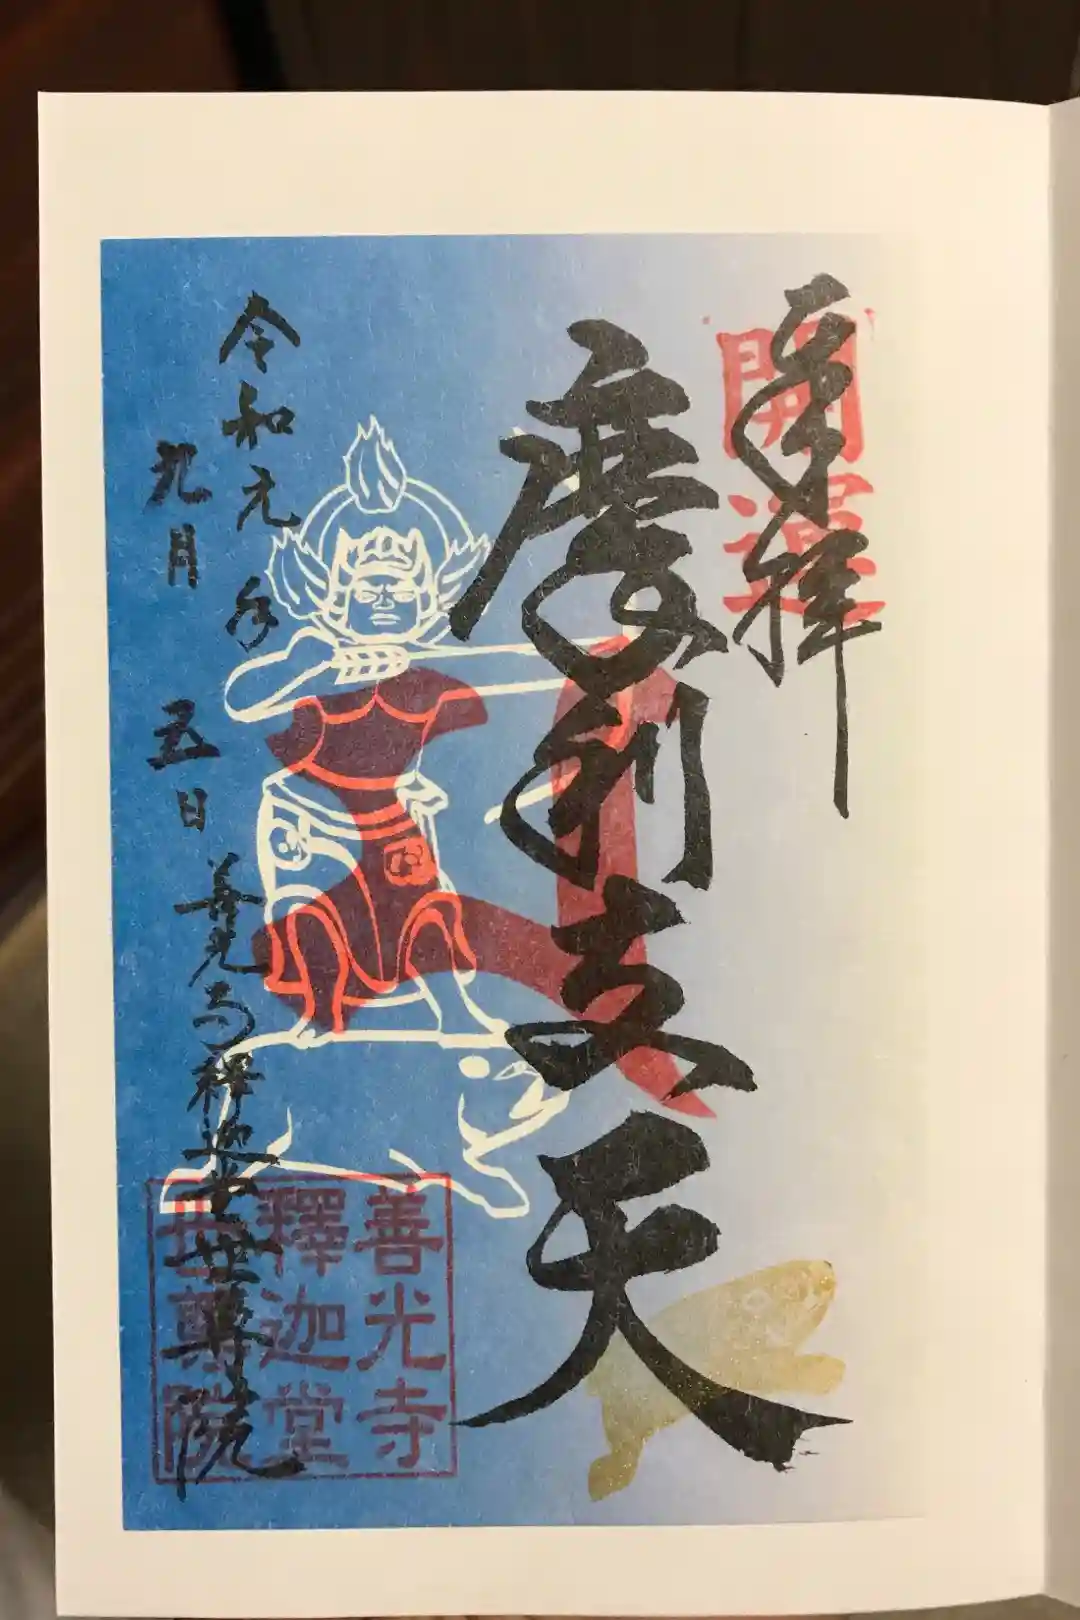 奉拝
開運
摩利支天
令和元年
九月 五日
善光寺釋迦堂世尊院
善光寺
釋迦堂
世尊院